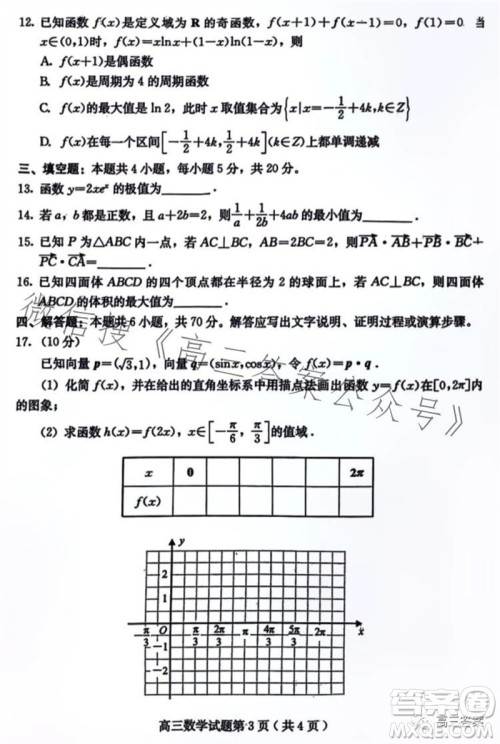 12. 已知函数 f(x)是定义域为 R 的奇函数，f(x+1)+f(x-1)=0，f(1)=0. 当
x∈(0,1)时，f(x)=xlnx+(1-x)ln(1-x)，则
A. f(x+1)是偶函数
B. f(x)是周期为 4 的周期函数
C. f(x)的最大值是 ln 2，此时 x 取值集合为{x|x=-1/2+4k,k∈Z}
D. f(x)在每一个区间[-1/2+4k,1/2+4k](k∈Z)上都单调递减
三、填空题：本题共 4 小题，每小题 5 分，共 20 分。
13. 函数 y=2xeˣ 的极值为______.
14. 若 a，b 都是正数，且 a+2b=2，则 1/a+1/2b+4ab 的最小值为______.
15. 已知 P 为△ABC 内一点，若 AC⊥BC，AB=2BC=2，则 PA·AB+PB·BC+
PC·CA=______.
16. 已知四面体 ABCD 的四个顶点都在半径为 2 的球面上，若 AC⊥BC，则四面体
ABCD 的体积的最大值为______.
四、解答题：本题共 6 小题，共 70 分。解答应写出文字说明、证明过程或演算步骤。
17. (10 分)
已知向量 p=(√3,1)，q=(sinx,cosx)，令 f(x)=p·q.
(1) 化简 f(x)，并在给出的直角坐标系中用描点法画出函数 y=f(x)在[0,2π]内
的图象；
(2) 求函数 h(x)=f(2x)，x∈[-π/6,π/3]的值域.
x 0 2π
f(x)
y
2
1
-π/3 O π/3 2π/3 π 4π/3 5π/3 2π x
-1
-2
高三数学试题第 3 页（共 4 页）
微信搜《高三答案公众号》
答案圈
高三答案